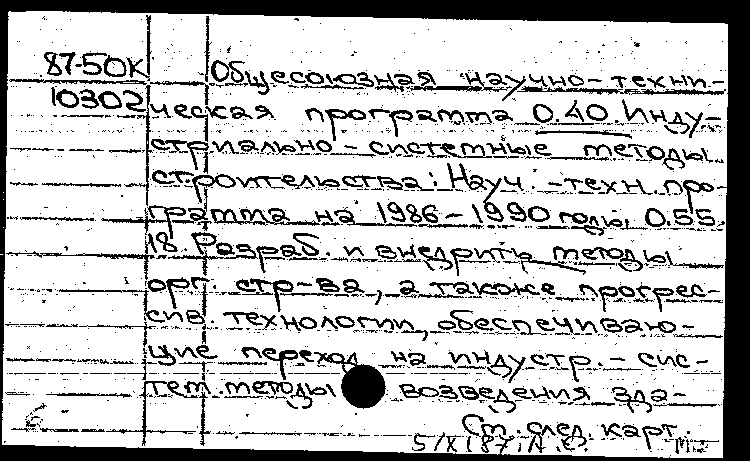 87-50К Общесоюзная научно-техни-
10302 ческая программа 0.40. Инду-
стриально-системные методы
строительства: Науч.-техн. про-
грамма на 1986-1990 годы, 0.55.
18. Разраб. и внедрить методы
орг. стр-ва, а также прогрес-
сив. технологии, обеспечиваю-
щие переход на индустр.-сис-
тем. методы возведения зда-
Ст. след. карт.
6